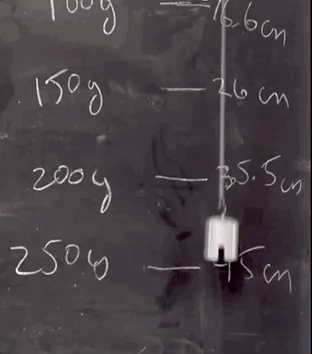 100g — 16.6cm
150g — 26 cm
200g — 35.5cm
250g — 45cm